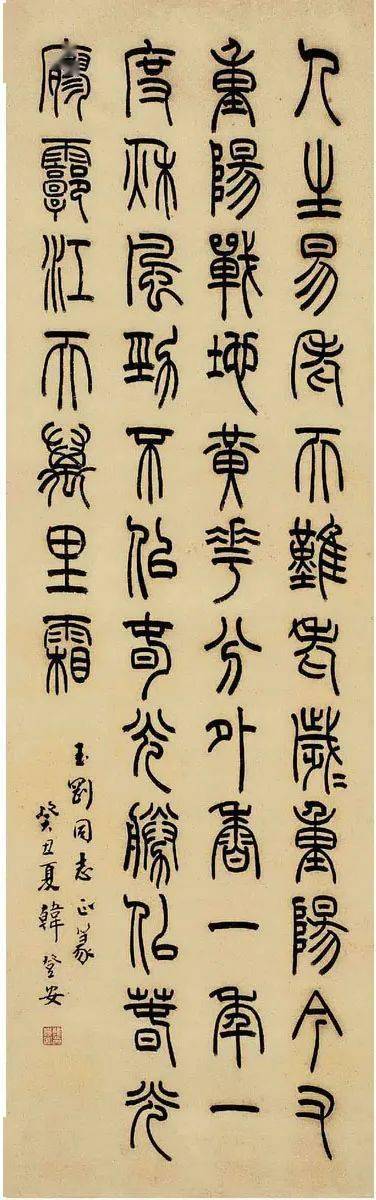 人生易老天難老歲〻重陽今又
重陽戰地黃花分外香一年一
度秋風勁不似春光勝似春光
廖霩江天萬里霜
玉劉同志正篆
癸丑夏韓登安